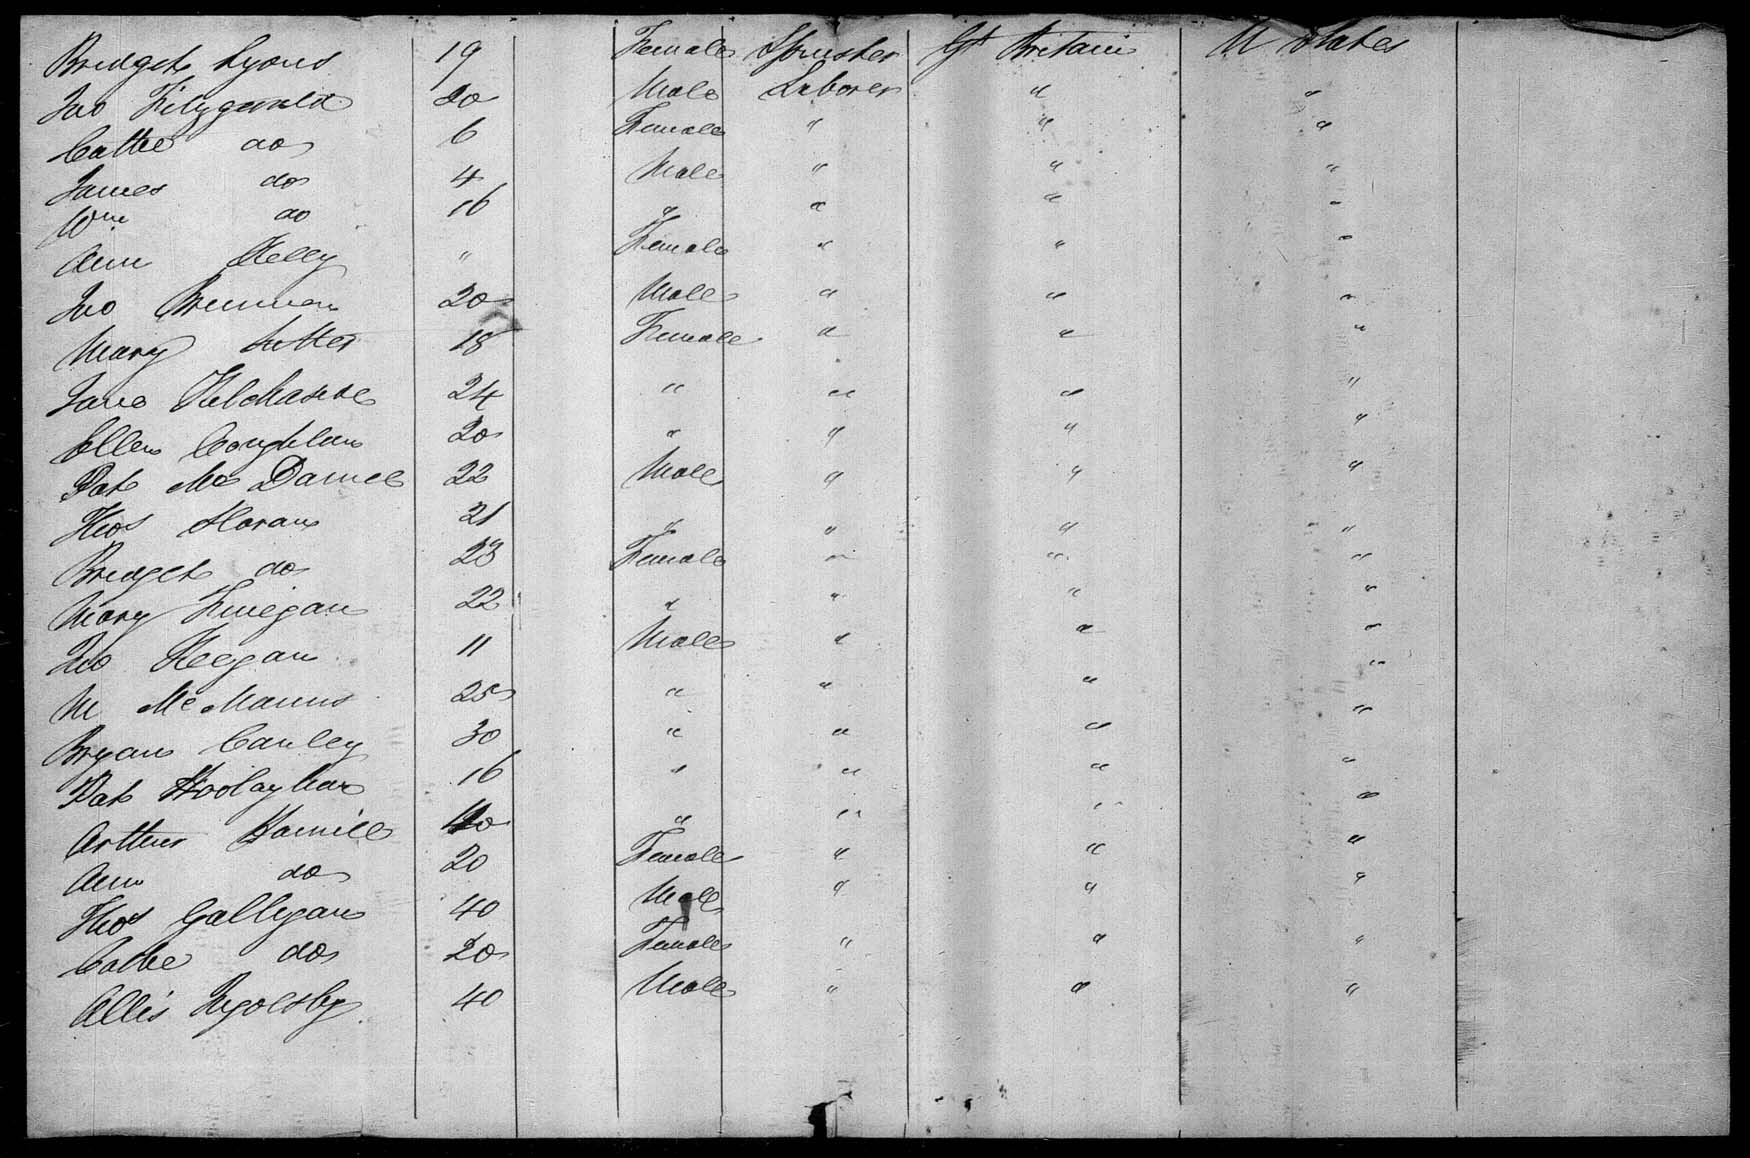 Bridget Lyons 19 Female Spinster Gt Britain U States
Jno Fitzgerald 20 Male Laborer " "
Cathe do 6 Female " " "
James do 4 Male " " "
Wm do 16 " " " "
Ann Kelly " Female " " "
Jno Brennan 20 Male " " "
Mary 18 Female " " "
Jane 24 " " " "
Ellen Coughlan 20 " " " "
Pat Mc Daniel 22 Male " " "
Thos Horan 21 " " " "
Bridget do 23 Female " " "
Mary Finegan 22 " " " "
Jno Keegan 11 Male " " "
M McManus 25 " " " "
Bryan Canley 30 " " " "
Pat 16 " " " "
Arthur Hamill 40 " " " "
Ann do 20 Female " " "
Thos Galligan 40 Male " " "
Cathe do 20 Female " " "
Allis Ingolsby 40 Male " " "